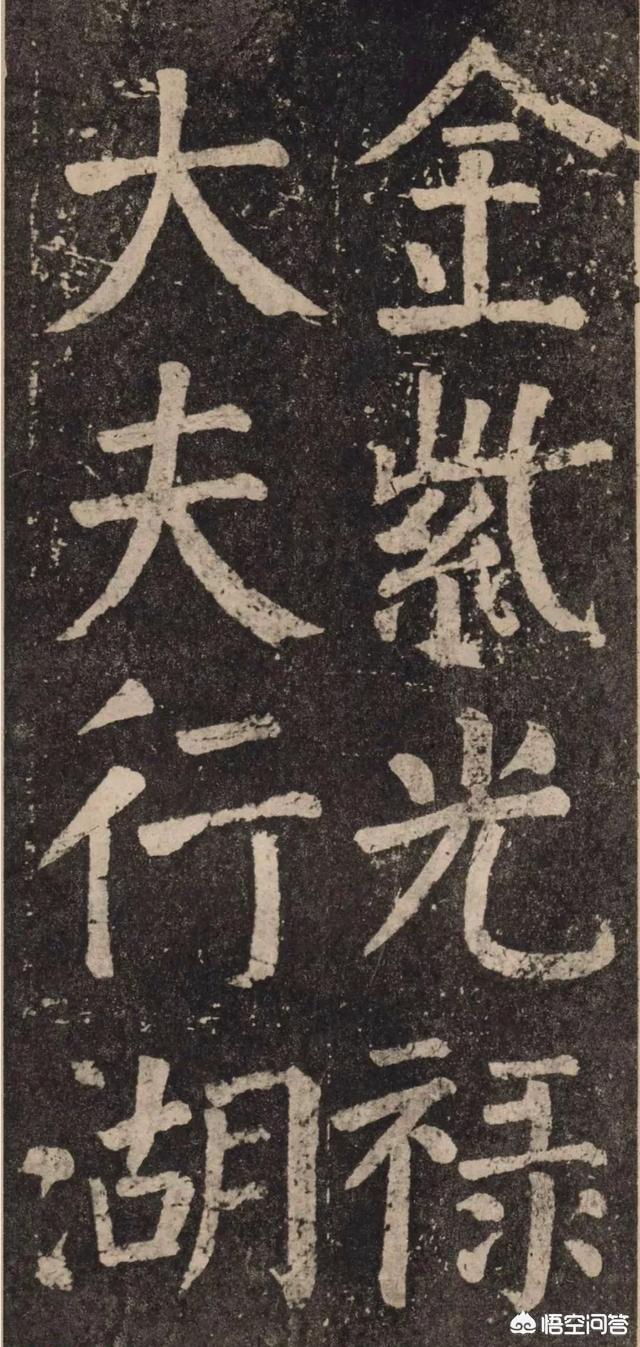 金紫光禄
大夫行湖
悟空问答